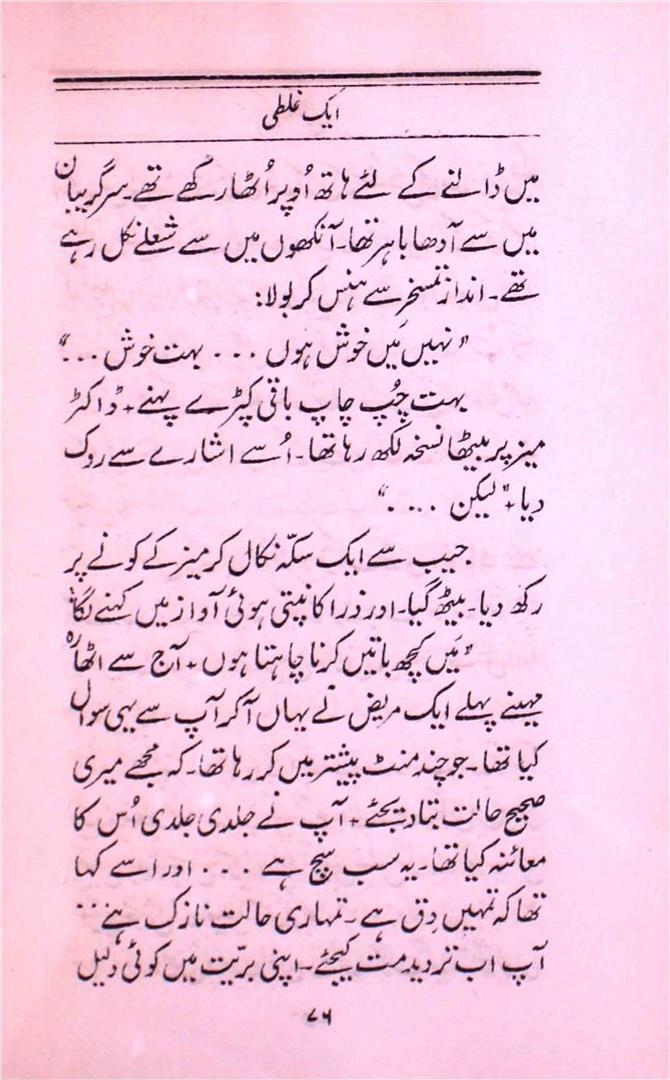 ایک غلطی
میں ڈالنے کے لئے ہاتھ اُوپر اُٹھا رکھے تھے۔ سر گریبان
میں سے آدھا باہر تھا۔ آنکھوں میں سے شعلے نکل رہے
تھے۔ اندازِ تمسخر سے ہنس کر بولا:
"نہیں مَیں خوش ہوں ... بہت خوش ..."
بہت چُپ چاپ باقی کپڑے پہنے۔ ڈاکٹر
میز پر بیٹھا نسخہ لکھ رہا تھا۔ اُسے اشارے سے روک
دیا۔ "لیکن ...."
جیب سے ایک سکّہ نکال کر میز کے کونے پر
رکھ دیا۔ بیٹھ گیا۔ اور ذرا کانپتی ہوئی آواز میں کہنے لگا:
"مَیں کچھ باتیں کرنا چاہتا ہوں۔ آج سے اٹھارہ
مہینے پہلے ایک مریض نے یہاں آ کر آپ سے یہی سوال
کیا تھا۔ جو چند منٹ پیشتر میں کر رہا تھا۔ کہ مجھے میری
صحیح حالت بتا دیجئے۔ آپ نے جلدی جلدی اُس کا
معائنہ کیا تھا۔ یہ سب سچ ہے ... اور اسے کہا
تھا کہ تمہیں دِق ہے۔ تمہاری حالت نازک ہے ...
آپ اب تردید مت کیجئے۔ اپنی بریّت میں کوئی دلیل
۷۶